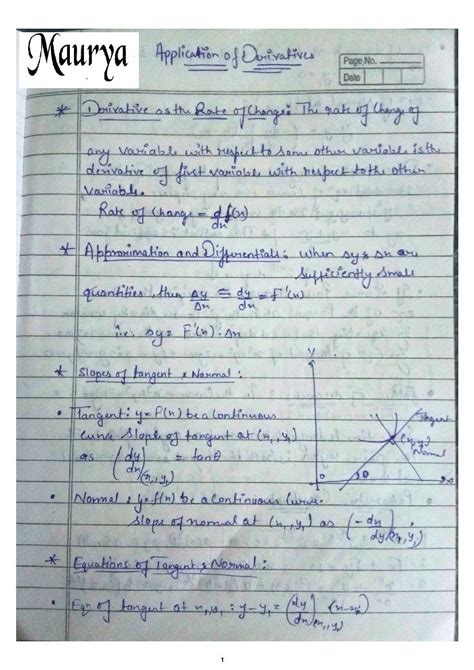 Maurya
Application of Derivatives
Page No.
Date
* Derivative as the Rate of Change: The rate of change of
any variable with respect to some other variable is the
derivative of first variable with respect to the other
variable.
Rate of change = d/dx f(x)
* Approximation and Differentials: when δy & δx are
sufficiently small
quantities, then Δy/Δx ≅ dy/dx = F'(x)
i.e. δy = F'(x) · Δx
* Slopes of tangent & Normal:
• Tangent: y = f(x) be a continuous
curve slope of tangent at (x₁, y₁)
as (dy/dx)(x₁, y₁) = tanθ
Y
Tangent
(x₁, y₁)
Normal
O
θ
• Normal: y = f(x) be a continuous curve.
slope of normal at (x₁, y₁) as (-dx/dy)(x₁, y₁)
* Equations of Tangent & Normal:
• Eqn of tangent at x₁, y₁ : y - y₁ = (dy/dx)(x₁, y₁) (x - x₁)
1